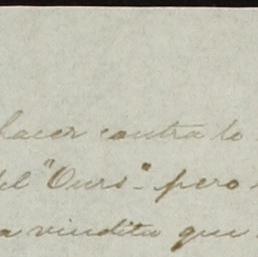 hacer contra lo
del "Ours" - pero
a vindita que